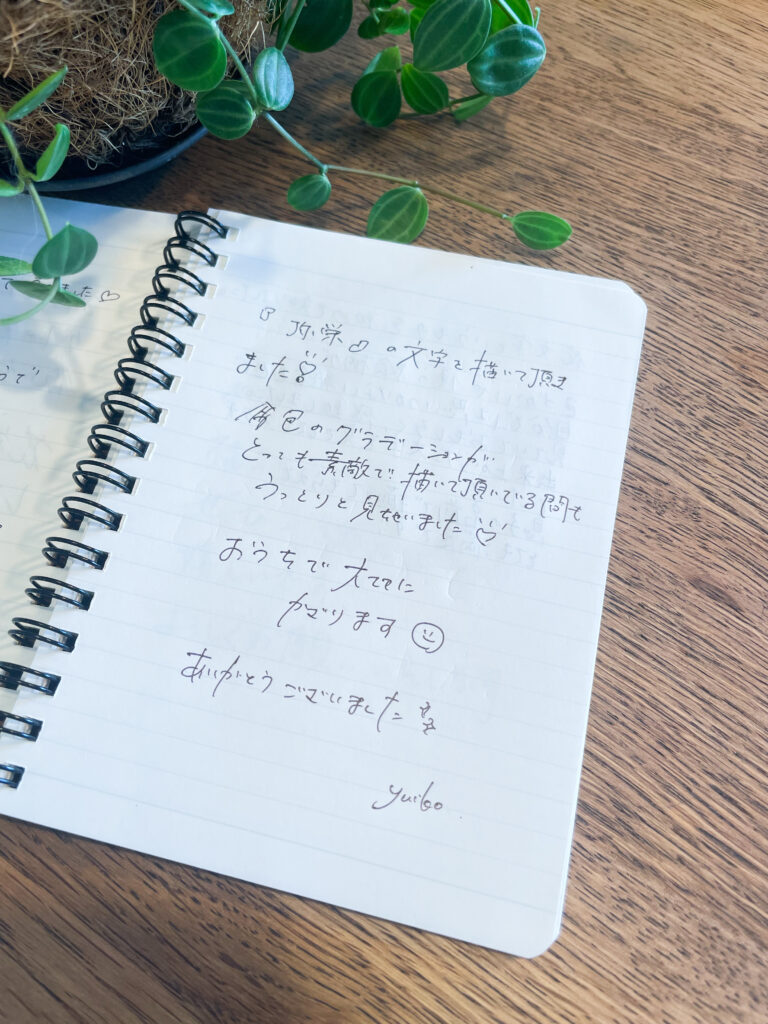 ました♡
『弥栄』の文字を描いて頂き
ました♡
金色のグラデーションが
とっても素敵で描いて頂いている間も
うっとりと見ちゃいました♡
おうちで大切に
かざります☺
ありがとうございました